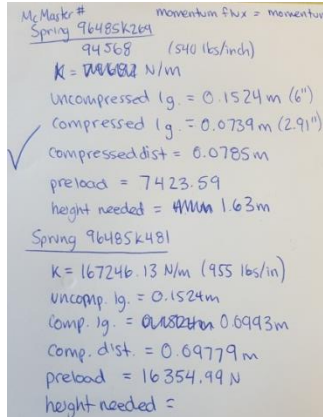 McMaster# momentum flux = momentum
Spring 96485K269
94568 (540 lbs/inch)
K = N/m
uncompressed lg. = 0.1524 m (6")
compressed lg. = 0.0739 m (2.91")
compressed dist = 0.0785m
preload = 7423.59
height needed = 1.63m
Spring 96485K481
K = 167246.13 N/m (955 lbs/in)
uncomp. lg. = 0.1524m
comp. lg. = 0.0993m
comp. dist. = 0.09779m
preload = 16354.99 N
height needed =